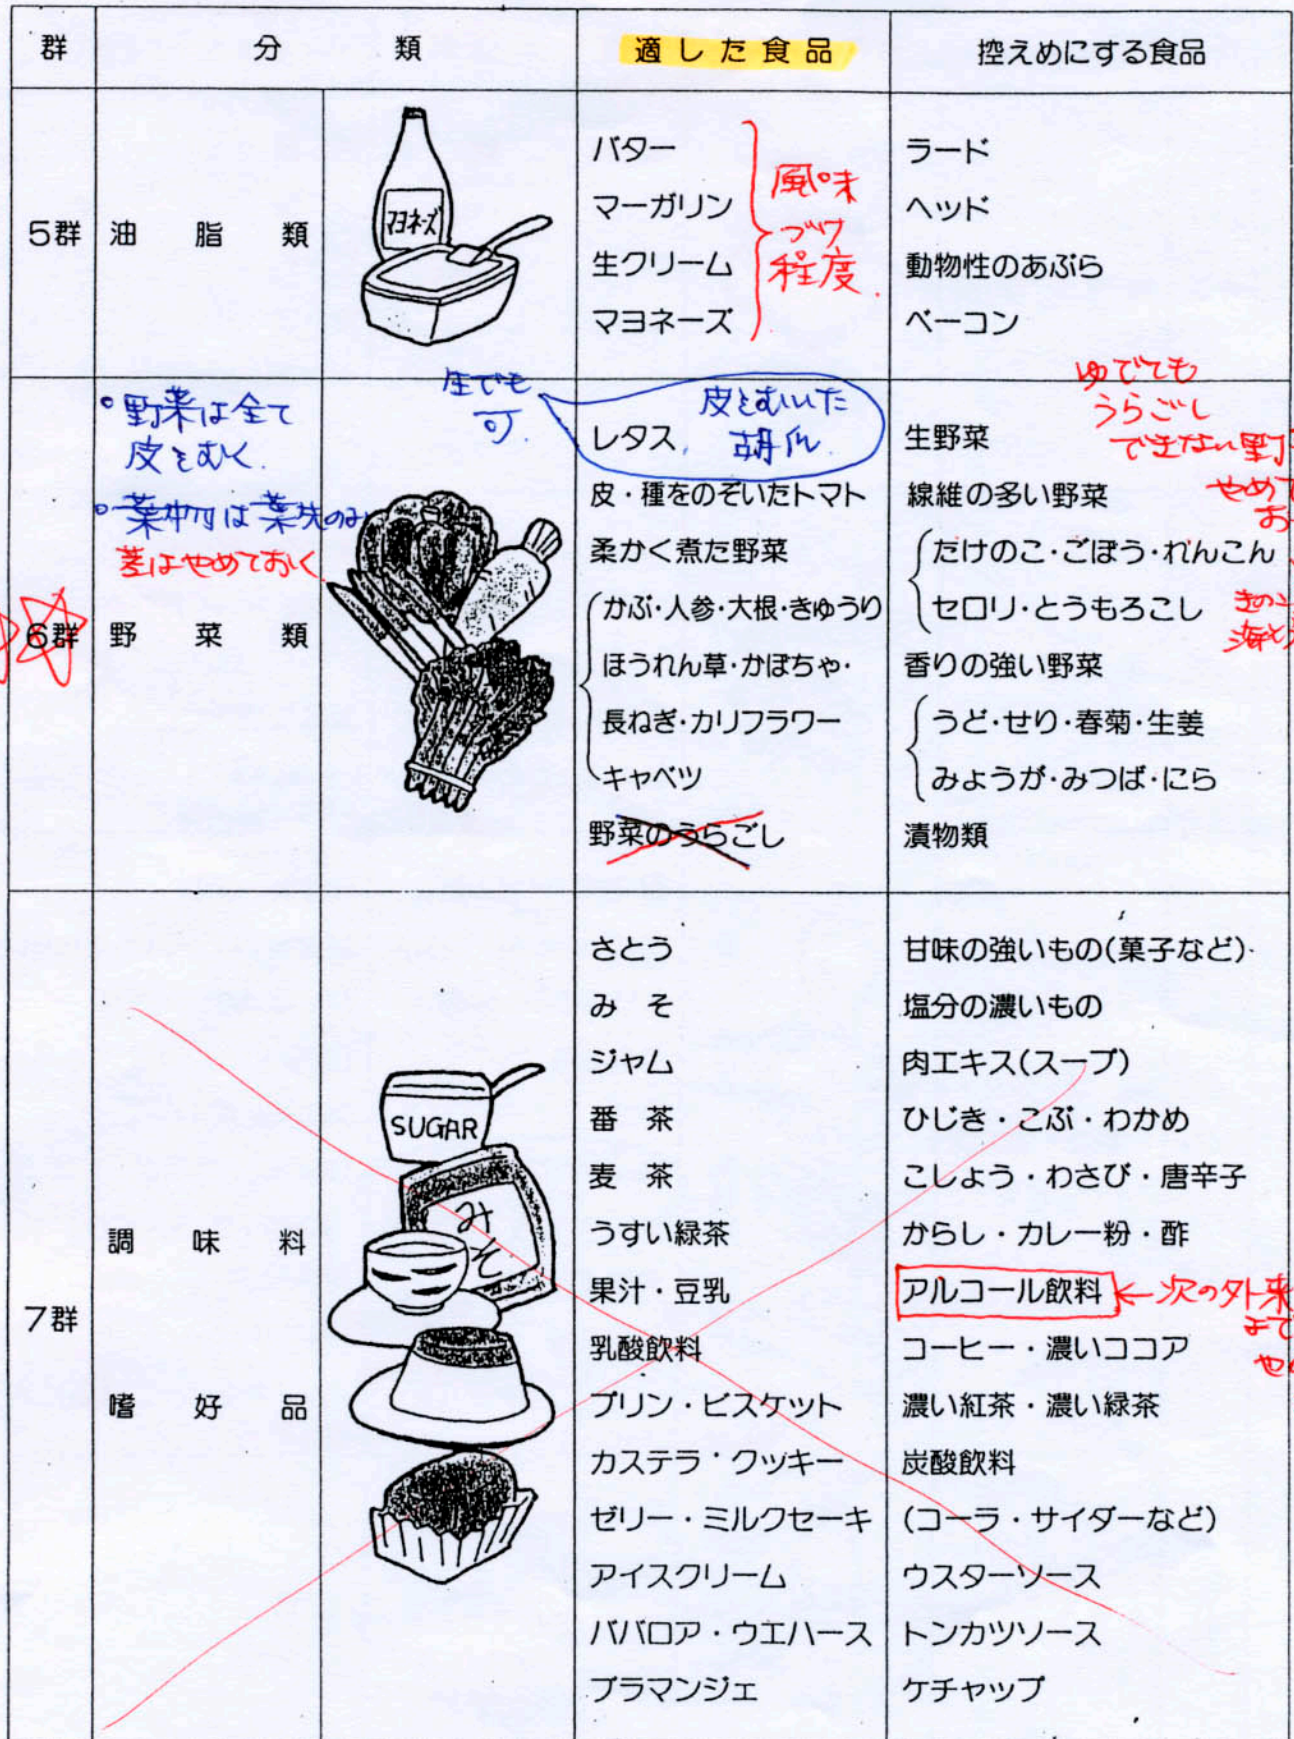 群 分類 適した食品 控えめにする食品
5群 油脂類
マヨネーズ
バター
マーガリン
生クリーム
マヨネーズ
風味
づけ
程度
ラード
ヘッド
動物性のあぶら
ベーコン
6群 野菜類
野菜は全て
皮をむく
葉物は葉先のみ
茎はやめておく
生でも
可
皮をむいた
胡瓜
レタス
皮・種をのぞいたトマト
柔かく煮た野菜
かぶ・人参・大根・きゅうり
ほうれん草・かぼちゃ・
長ねぎ・カリフラワー
キャベツ
野菜のうらごし
ゆでても
うらごし
できない野
やめて
お
生野菜
線維の多い野菜
たけのこ・ごぼう・れんこん
セロリ・とうもろこし
きのこ
香りの強い野菜
うど・せり・春菊・生姜
みょうが・みつば・にら
漬物類
7群 調味料
嗜好品
SUGAR
みそ
さとう
みそ
ジャム
番茶
麦茶
うすい緑茶
果汁・豆乳
乳酸飲料
プリン・ビスケット
カステラ・クッキー
ゼリー・ミルクセーキ
アイスクリーム
ババロア・ウエハース
ブラマンジェ
甘味の強いもの(菓子など)
塩分の濃いもの
肉エキス(スープ)
ひじき・こぶ・わかめ
こしょう・わさび・唐辛子
からし・カレー粉・酢
アルコール飲料 ←次の外来
まで
コーヒー・濃いココア
濃い紅茶・濃い緑茶
炭酸飲料
(コーラ・サイダーなど)
ウスターソース
トンカツソース
ケチャップ